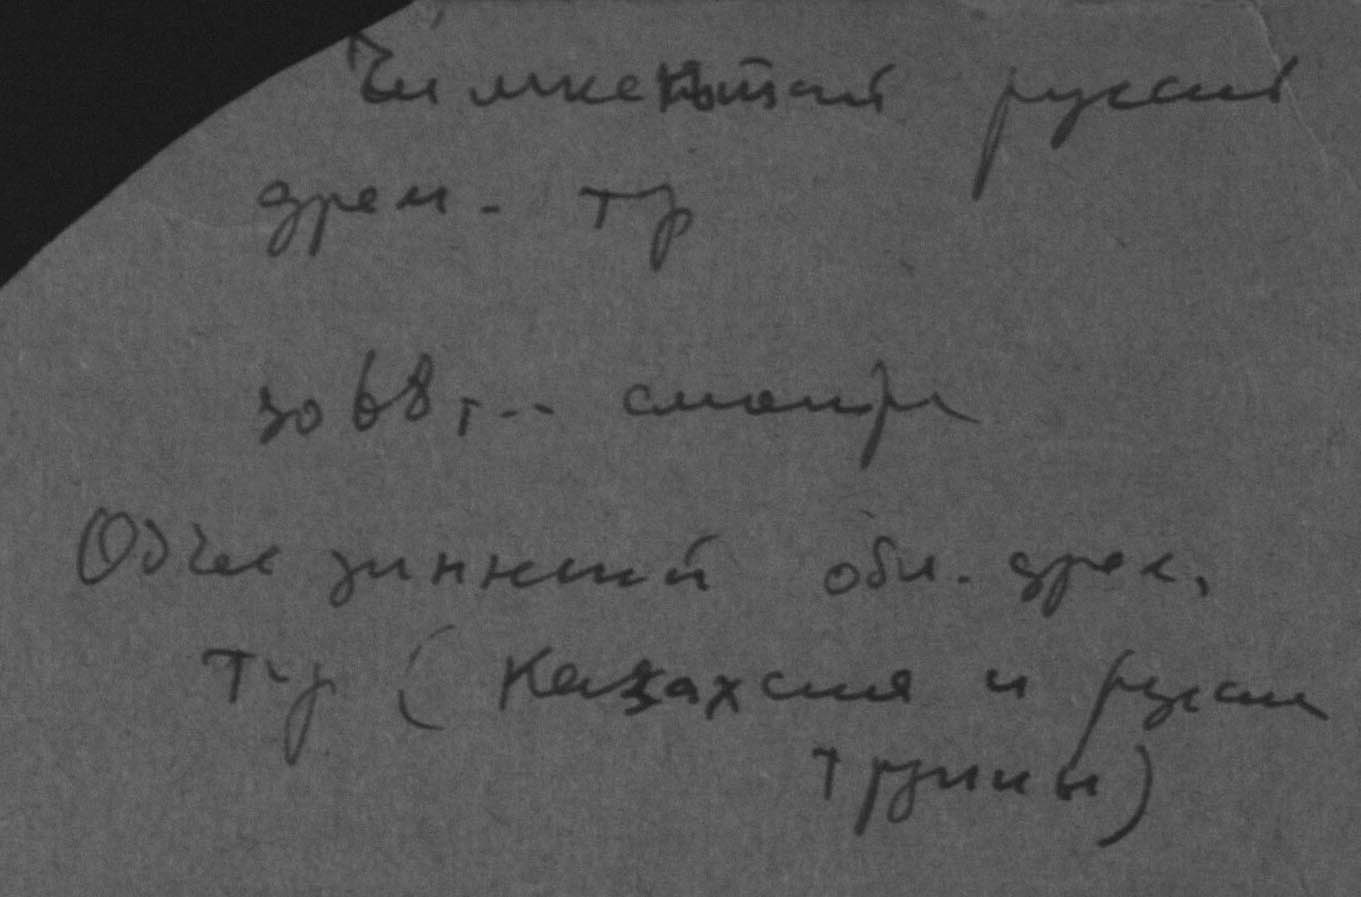 Чимкентский русский
драм. тр
за 68 г... смотри
Объединенный обл. драм.
т-р (казахская и русск
труппы)